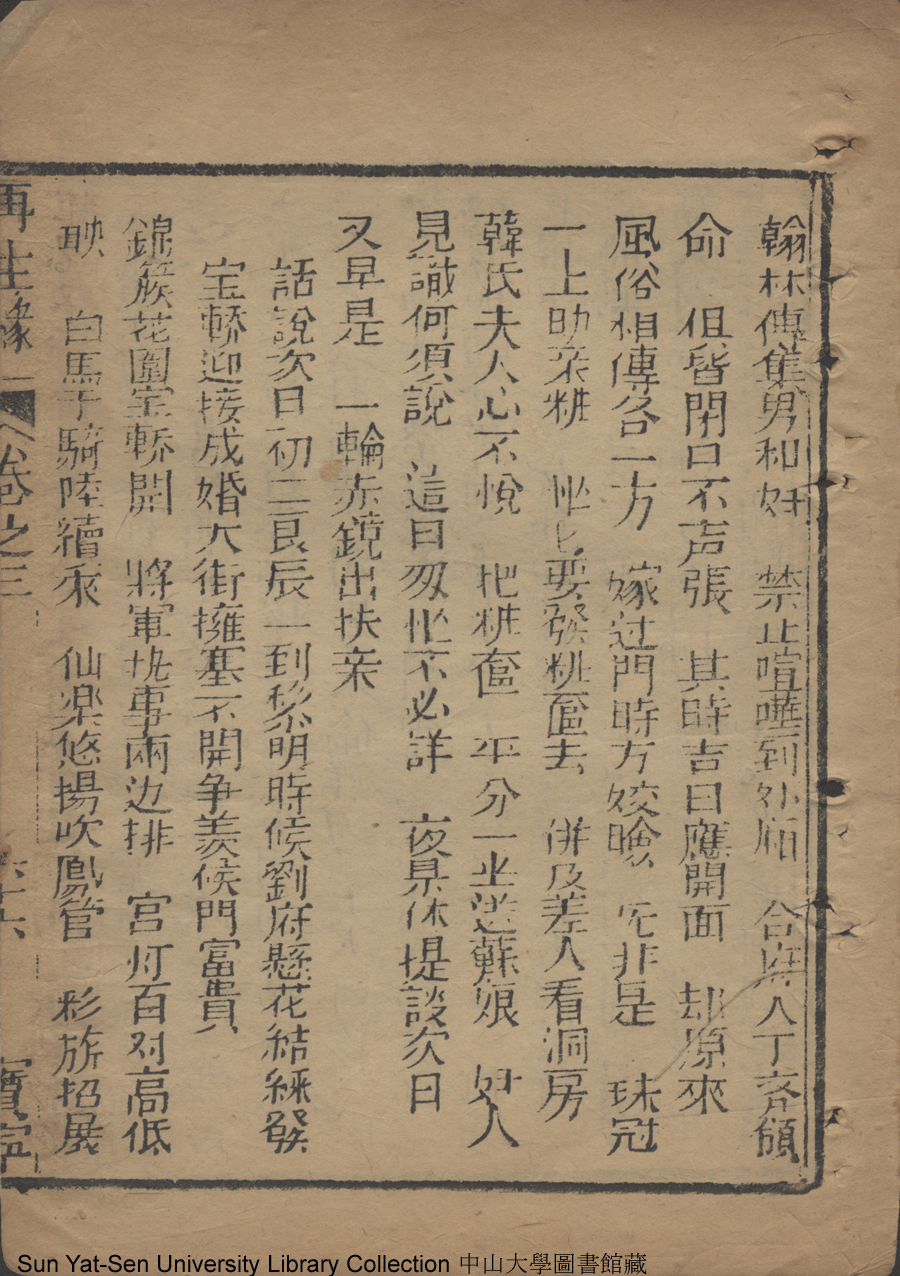 翰林傳集男和奴　禁止喧嘩到外廂　合府人丁齐領
命　俱皆閉口不声張　其時吉日應開面　却原來
風俗相傳各一方　嫁过門時方姣臉　无非是　珠冠
一上助亲粧　　忙匕要發粧奩去　併及差人看洞房
韓氏夫人心不悅　把粧奩　平分一半送蘇娘　奸人
見識何須說　這日匆忙不必詳　夜景休提談次日
又早是　一輪赤鏡出扶桑
話說次日初二良辰一到黎明時候劉府懸花結綵發
宝轎迎接成婚大街擁塞不開争羨候門富貴
錦簇花團宝轎開　將軍执事兩边排　宫灯百对高低
映　白馬千騎陸續來　仙樂悠揚吹鳳管　彩旂招展
再生緣一　卷之三　六十六　寶寧
Sun Yat-Sen University Library Collection 中山大學圖書館藏